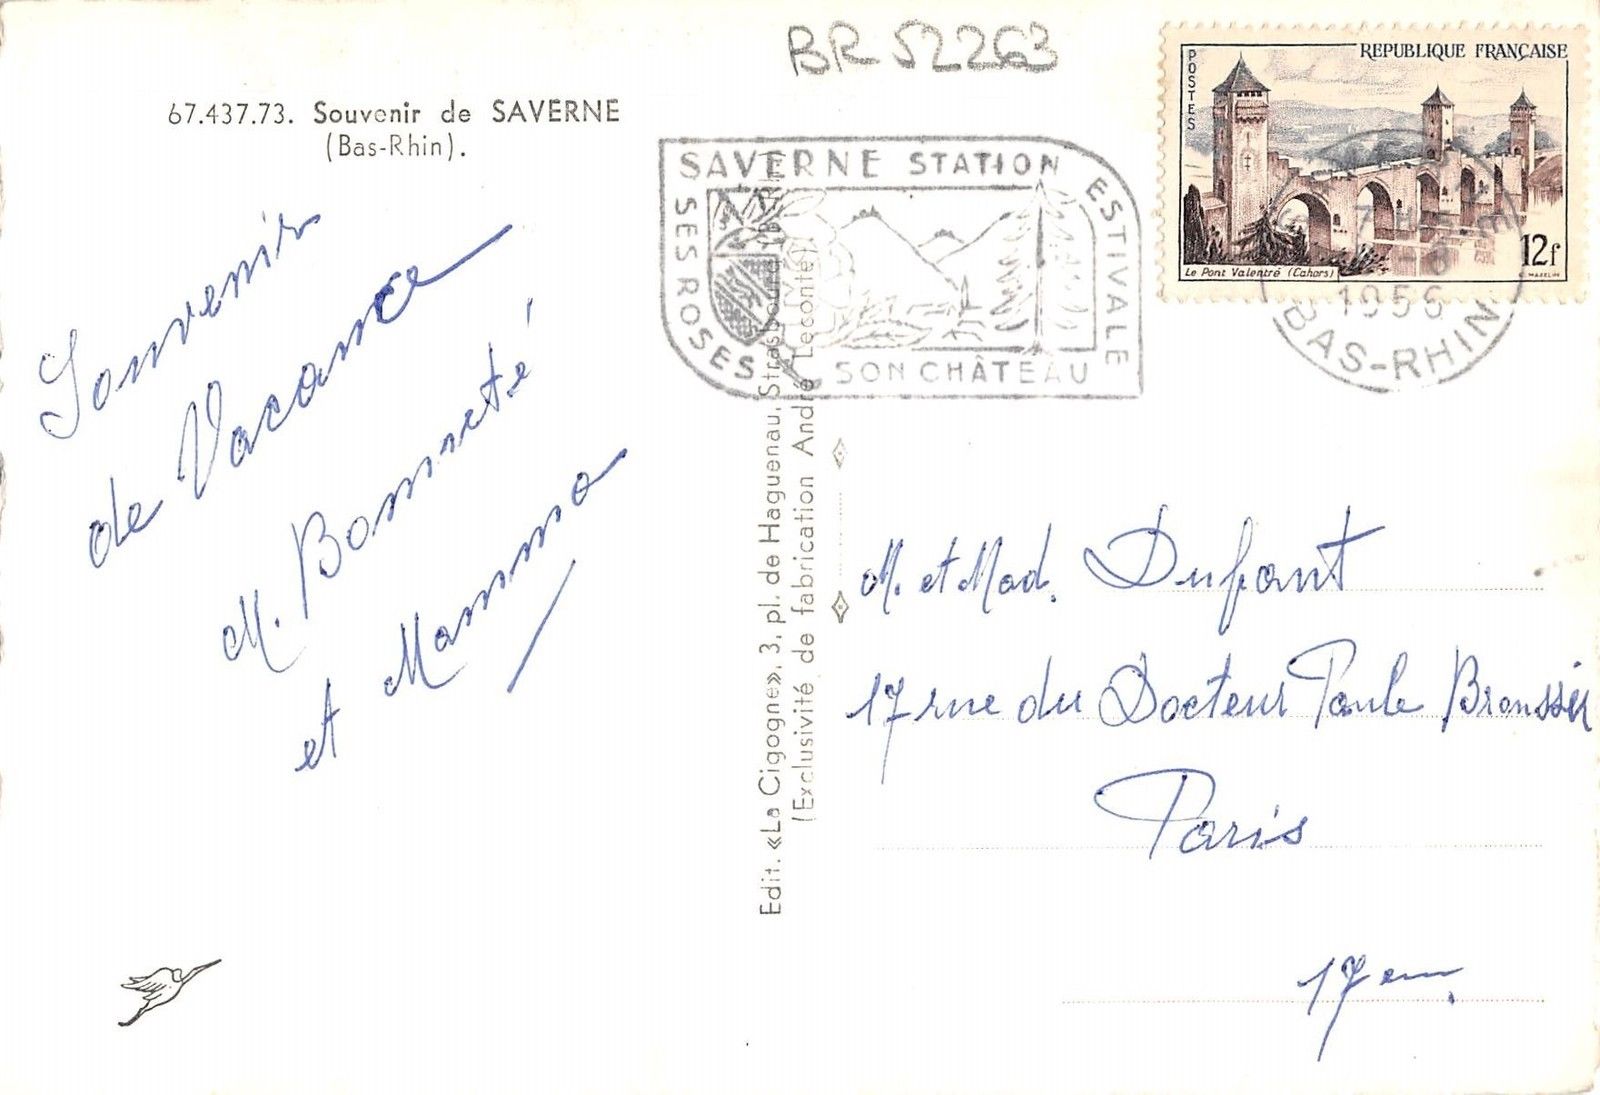 BR 52263
67.437.73. Souvenir de SAVERNE
(Bas-Rhin).
Souvenir
de Vacance
M. Bonneté
et Mamma
SAVERNE STATION ESTIVALE
SES ROSES
SON CHÂTEAU
REPUBLIQUE FRANÇAISE
POSTES
Le Pont Valentré (Cahors)
12f
1956
BAS-RHIN
Edit. «La Cigogne», 3, pl. de Haguenau, Strasbourg
(Exclusivité de fabrication André Leconte)
M. et Mad. Dufant
17 rue du Docteur Paule Broussier
Paris
17em.